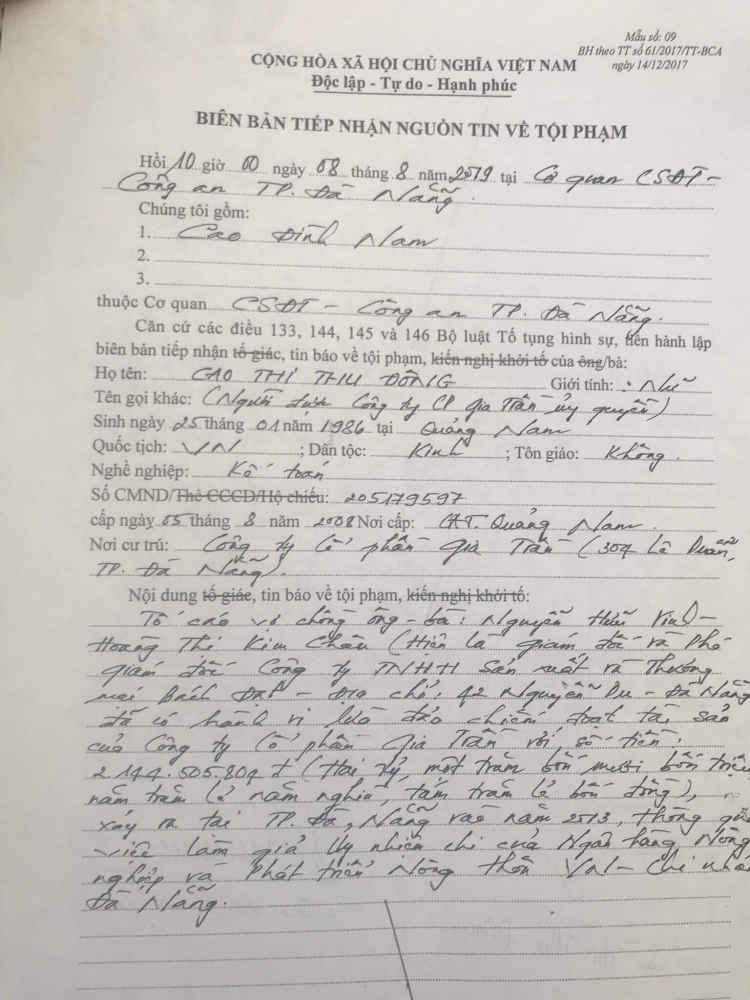 Mẫu số: 09
BH theo TT số 61/2017/TT-BCA
ngày 14/12/2017
CỘNG HÒA XÃ HỘI CHỦ NGHĨA VIỆT NAM
Độc lập - Tự do - Hạnh phúc
BIÊN BẢN TIẾP NHẬN NGUỒN TIN VỀ TỘI PHẠM
Hồi 10 giờ 00 ngày 08 tháng 8 năm 2019 tại Cơ quan CSĐT -
Công an TP. Đà Nẵng.
Chúng tôi gồm:
1. Cao Đình Nam
2.
3.
thuộc Cơ quan CSĐT - Công an TP. Đà Nẵng.
Căn cứ các điều 133, 144, 145 và 146 Bộ luật Tố tụng hình sự, tiến hành lập
biên bản tiếp nhận tố giác, tin báo về tội phạm, kiến nghị khởi tố của ông/bà:
Họ tên: CAO THỊ THU ĐÔNG Giới tính: Nữ
Tên gọi khác: (Người được Công ty CP Gia Trần ủy quyền)
Sinh ngày 25 tháng 01 năm 1986 tại Quảng Nam
Quốc tịch: VN ; Dân tộc: Kinh ; Tôn giáo: Không.
Nghề nghiệp: Kế toán
Số CMND/Thẻ CCCD/Hộ chiếu: 205179597
cấp ngày 05 tháng 8 năm 2008 Nơi cấp: CAT. Quảng Nam.
Nơi cư trú: Công ty Cổ phần Gia Trần (304 Lê Duẩn,
TP. Đà Nẵng).
Nội dung tố giác, tin báo về tội phạm, kiến nghị khởi tố:
Tố cáo vợ chồng ông - bà: Nguyễn Hữu Vinh -
Hoàng Thị Kim Châu (Hiện là giám đốc và Phó
giám đốc Công ty TNHH Sản xuất và Thương
mại Bách Đạt - địa chỉ: 42 Nguyễn Du - Đà Nẵng
đã có hành vi lừa đảo chiếm đoạt tài sản
của Công ty Cổ phần Gia Trần với số tiền:
2.144.505.804 đ (Hai tỷ, một trăm bốn mươi bốn triệu
năm trăm lẻ năm nghìn, tám trăm lẻ bốn đồng),
xảy ra tại TP. Đà Nẵng vào năm 2013, thông qua
việc làm giả Ủy nhiệm chi của Ngân hàng Nông
nghiệp và Phát triển Nông thôn VN - Chi nhánh
Đà Nẵng.